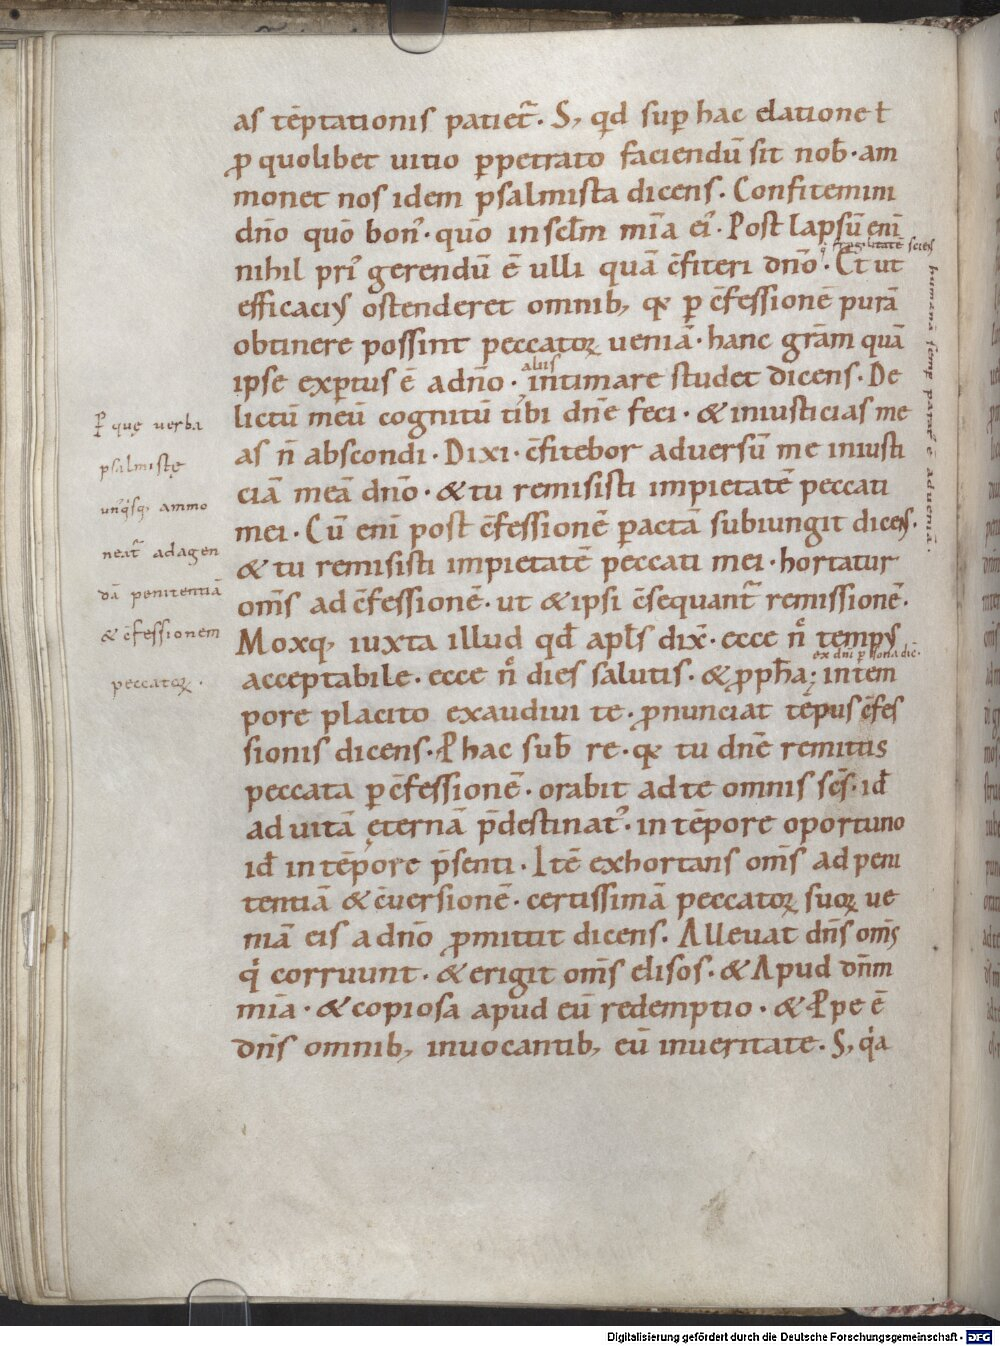 as tēptationis patiet᷑. S; qd sup hac elatione ł
ꝓ quolibet uitio ꝑpetrato faciendū sit nob̄. am
monet nos idem psalmista dicens. Confitemini
dn̄o quō bon᷒. quō in sc̄lm mīa ei᷒. Post lapsū enī
q fragilitatē sciens
nihil pri᷒ gerendū ē ulli quā c̄fiteri dn̄o. Et ut
humanā semp paratā ē adueniā.
efficaciꝰ ostenderet omnib; qꝛ ꝑ c̄fessionē purā
obtinere possint peccatoꝝ ueniā. hanc gr̄am quā
aliis
ipse exꝑtus ē a dn̄o. intimare studet dicens. De
lictū meū cognitū tibi dn̄e feci. & iniusticias me
as n̄ abscondi. Dixi. c̄fitebor aduersū me iniusti
ciā meā dn̄o. & tu remisisti impietatē peccati
mei. Cū enī post c̄fessionē ꝑactā subiungit dicens.
& tu remisisti impietatē peccati mei. hortatur
om̄s ad c̄fessionē. ut & ipsi c̄sequant᷑ remissionē.
Moxq; iuxta illud qd̄ apl̄s dix̄. ecce n̄ tempꝰ
ex dn̄i ꝑsona dic̄.
acceptabile. ecce n̄ dies salutis. & ꝓph̄a; in tem
pore placito exaudiui te. ꝓnunciat tēpus c̄fes
sionis dicens. P hac sub̄ re. qꝛ tu dn̄e remittis
peccata ꝑ c̄fessionē. orabit ad te omnis sc̄s. id̄
ad uitā ęternā p̄destinat᷒. in tēpore oportuno
id̄ in tēpore p̄senti. Itē exhortans om̄s ad peni
tentiā & c̄uersionē. certissimā peccatoꝝ suoꝝ ue
niā eis a dn̄o ꝓmittit dicens. Alleuat dn̄s om̄s
qⁱ corruunt. & erigit om̄s elisos. & Apud dn̄m
mīa. & copiosa apud eū redemptio. & Ppe ē
dn̄s omnib; inuocantib; eū in ueritate. S; qⁱa
P quę uerba
psalmistę
unqⁱsq; ammo
neat᷑ ad agen
dā penitentiā
& c̄fessionem
peccatoꝝ.
Digitalisierung gefördert durch die Deutsche Forschungsgemeinschaft - DFG